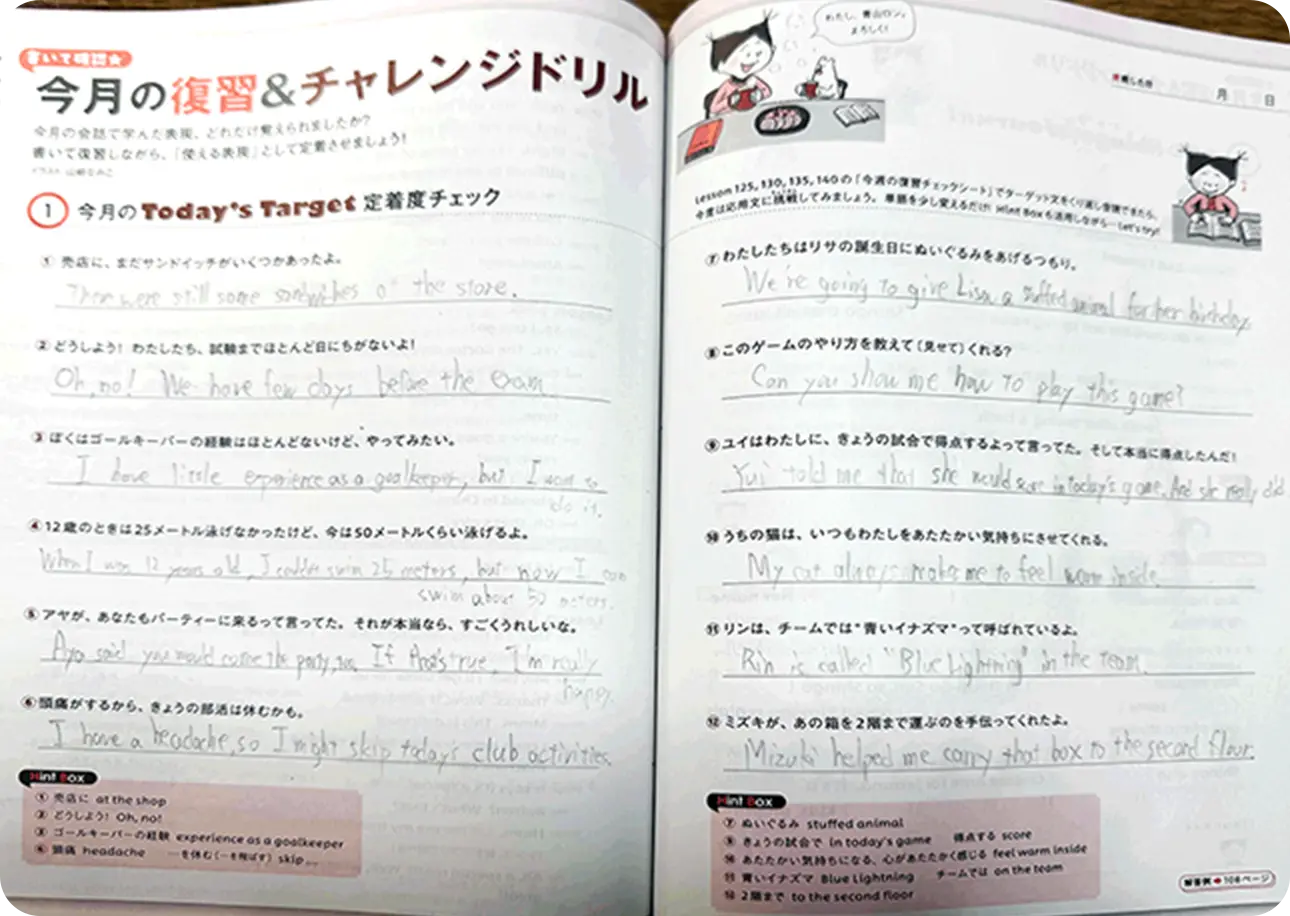 書いて確認★
今月の復習&チャレンジドリル
今月の会話で学んだ表現、どれだけ覚えられましたか?
書いて復習しながら、「使える表現」として定着させましょう!
イラスト 山崎なみこ
1 今月のToday's Target 定着度チェック
① 売店に、まだサンドイッチがいくつかあったよ。
There were still some sandwiches at the store.
② どうしよう! わたしたち、試験までほとんど日にちがないよ!
Oh, no! We have few days before the exam.
③ ぼくはゴールキーパーの経験はほとんどないけど、やってみたい。
I have little experience as a goalkeeper, but I want to
do it.
④ 12歳のときは25メートル泳げなかったけど、今は50メートルくらい泳げるよ。
When I was 12 years old, I couldn't swim 25 meters, but now I can
swim about 50 meters.
⑤ アヤが、あなたもパーティーに来るって言ってた。それが本当なら、すごくうれしいな。
Aya said you would come the party, too. If that's true, I'm really
happy.
⑥ 頭痛がするから、きょうの部活は休むかも。
I have a headache, so I might skip today's club activities.
Hint Box
① 売店に at the shop
② どうしよう! Oh, no!
③ ゴールキーパーの経験 experience as a goalkeeper
⑥ 頭痛 headache …を休む(…を飛ばす) skip ...
わたし、青山ロン。
よろしく!
月 日
Lesson 125, 130, 135, 140の「今週の復習チェックシート」でターゲット文をくり返し音読できたら、
今度は応用文に挑戦してみましょう。単語を少し変えるだけ! Hint Boxも活用しながら… Let's try!
⑦ わたしたちはリサの誕生日にぬいぐるみをあげるつもり。
We're going to give Lisa a stuffed animal for her birthday.
⑧ このゲームのやり方を教えて(見せて)くれる?
Can you show me how to play this game?
⑨ ユイはわたしに、きょうの試合で得点するよって言ってた。そして本当に得点したんだ!
Yui told me that she would score in today's game. And she really did
⑩ うちの猫は、いつもわたしをあたたかい気持ちにさせてくれる。
My cat always make me to feel warm inside.
⑪ リンは、チームでは"青いイナズマ"って呼ばれているよ。
Rin is called "Blue Lightning" in the team.
⑫ ミズキが、あの箱を2階まで運ぶのを手伝ってくれたよ。
Mizuki helped me carry that box to the second flour.
Hint Box
⑦ ぬいぐるみ stuffed animal
⑨ きょうの試合で in today's game 得点する score
⑩ あたたかい気持ちになる、心があたたかく感じる feel warm inside
⑪ 青いイナズマ Blue Lightning チームでは on the team
⑫ 2階まで to the second floor
解答例➡108ページ